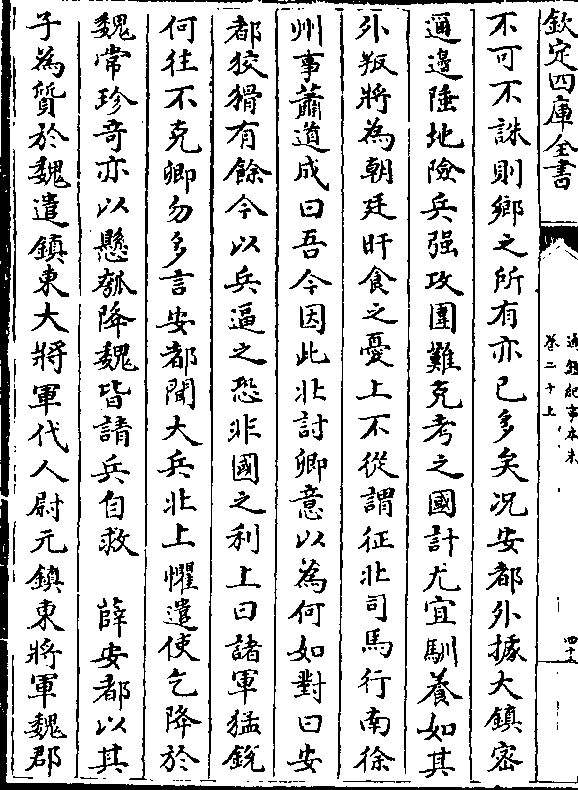 欽定四庫全書
通鑑紀事本末
卷二十上
四十五
不可不誅則鄉之所有亦已多矣况安都外據大鎮密
邇邊陲地險兵强攻圍難克考之國計尤宜馴養如其
外叛將為朝廷旰食之憂上不從謂征北司馬行南徐
州事蕭道成曰吾今因此北討卿意以為何如對曰安
都狡猾有餘今以兵逼之恐非國之利上曰諸軍猛銳
何往不克卿勿多言安都聞大兵北上懼遣使乞降於
魏常珍奇亦以懸瓠降魏皆請兵自救　薛安都以其
子為質於魏遣鎮東大將軍代人尉元鎮東將軍魏郡